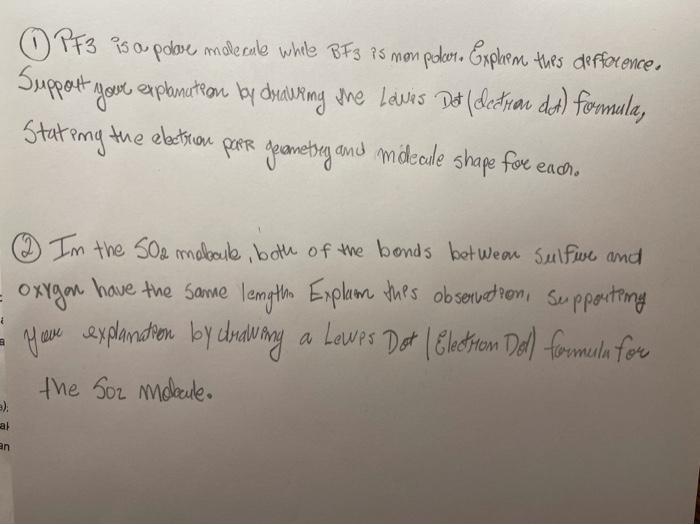 ① PF3 is a polar molecule while BF3 is non polar. Explain this difference.
Support your explanation by drawing the Lewis Dot (electron dot) formula,
Stating the electron pair geometry and molecule shape for each.
② In the SO2 molecule, both of the bonds between sulfur and
oxygen have the same length. Explain this observation, supporting
your explanation by drawing a Lewis Dot (Electron Dot) formula for
the SO2 molecule.